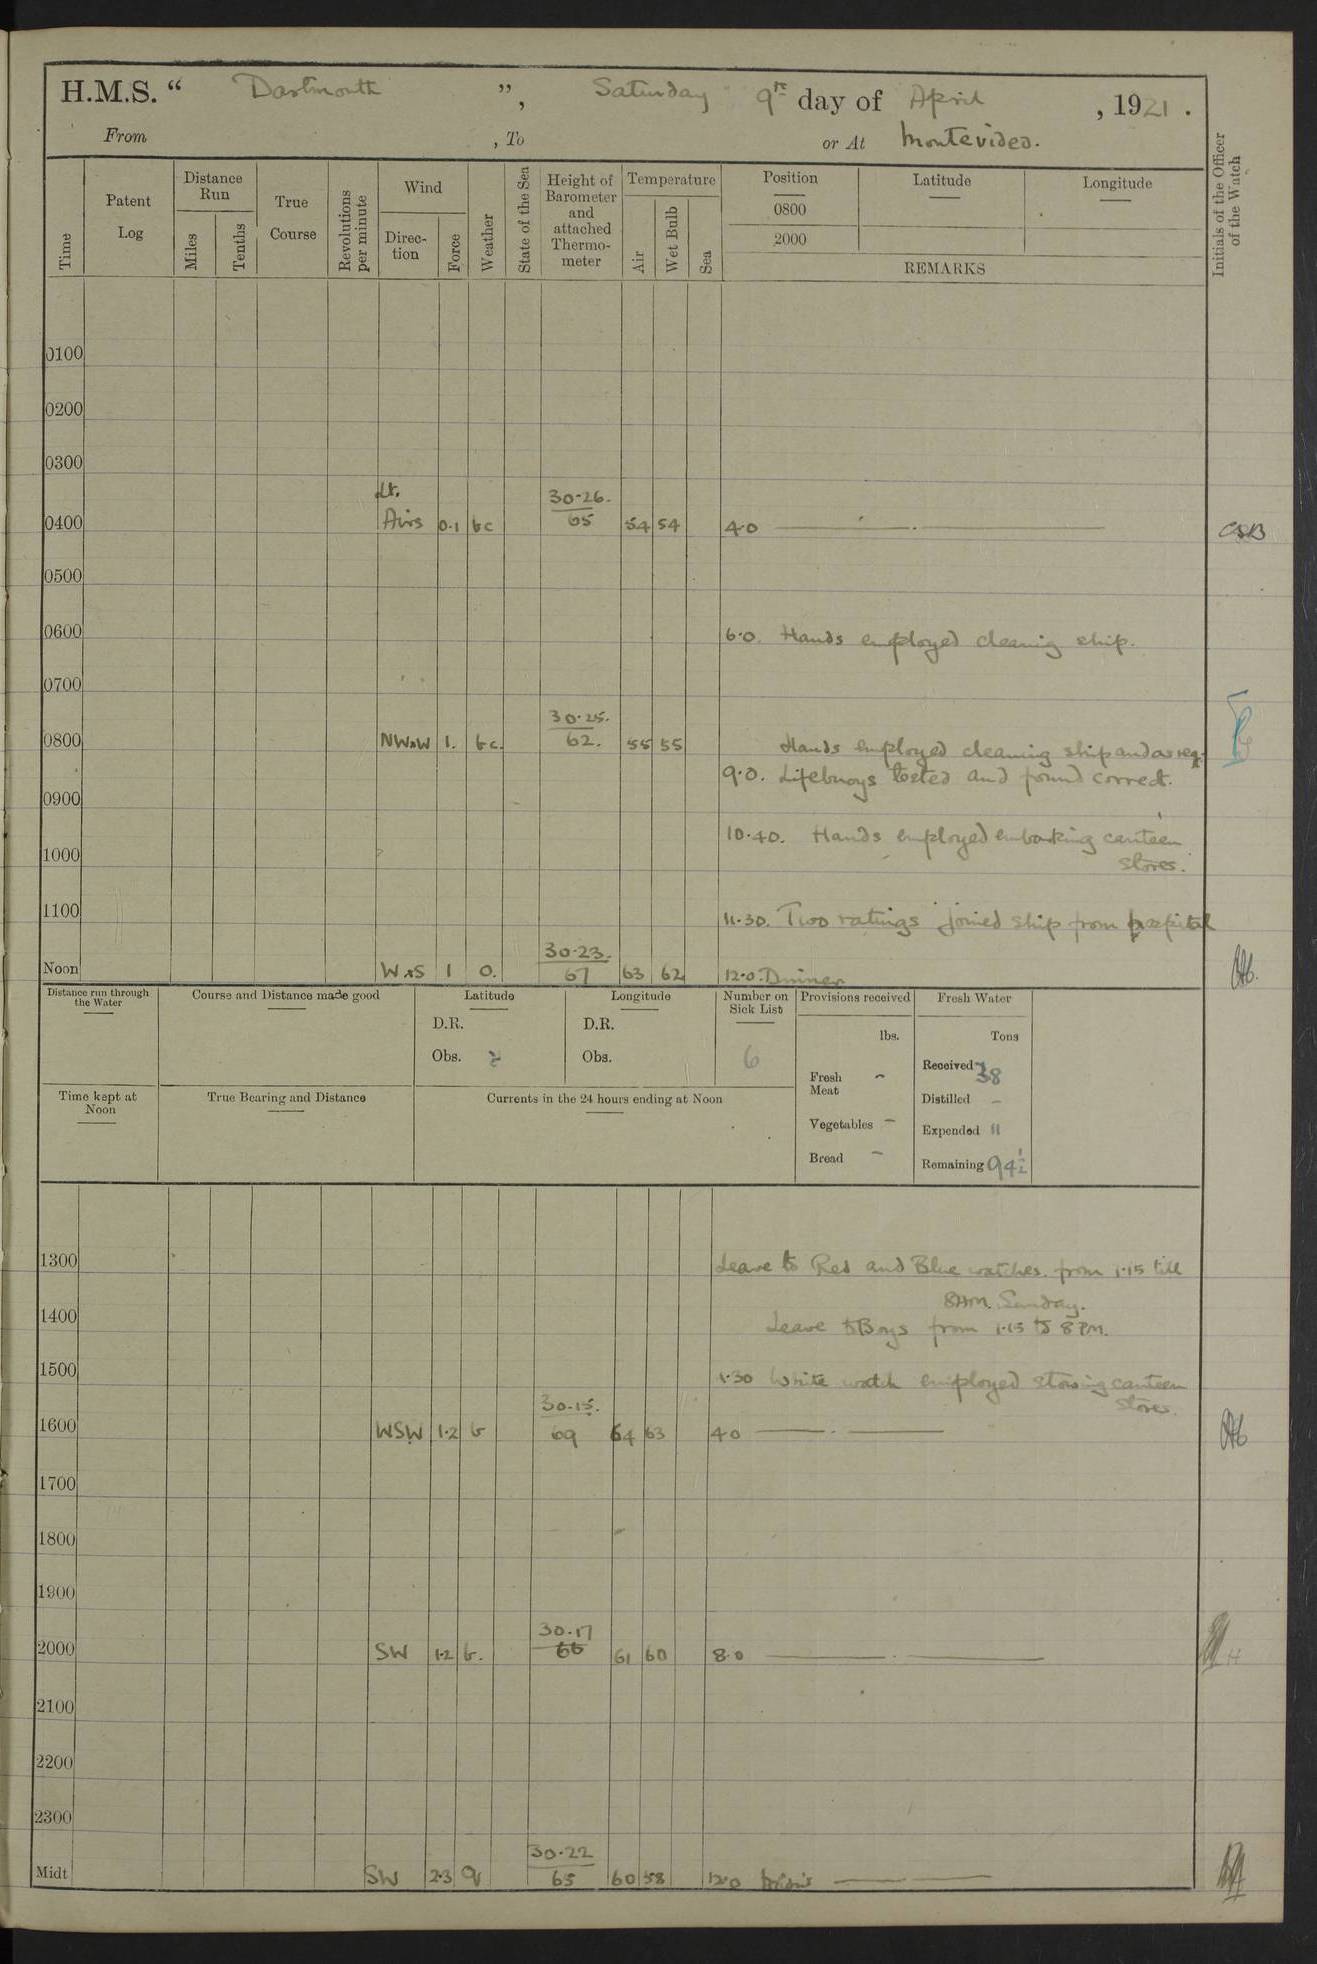 H.M.S. “ Dartmouth ”, Saturday 9th day of April , 1921 .
From , To or At Montevideo.
Time
Patent Log
Distance Run
Miles
Tenths
True Course
Revolutions per minute
Wind
Direc-tion
Force
Weather
State of the Sea
Height of Barometer and attached Thermo-meter
Temperature
Air
Wet Bulb
Sea
Position
0800
2000
Latitude
Longitude
REMARKS
Initials of the Officer of the Watch
0100
0200
0300
Lt. 30·26.
0400 Airs 0·1 bc 65 54 54 4·0 CSB
0500
0600 6·0. Hands employed cleaning ship.
0700
30·25.
0800 NWxW 1. bc. 62. 55 55 Hands employed cleaning ship and as req.
9·0. Lifebuoys tested and found correct.
0900
10·40. Hands employed embarking canteen
1000 stores.
1100 11·30. Two ratings joined ship from hospital
30·23.
Noon WxS 1 0. 67 63 62 12·0. Dinner
Distance run through the Water
Course and Distance made good
Latitude
D.R.
Obs.
Longitude
D.R.
Obs.
Number on Sick List
6
Provisions received
lbs.
Fresh Meat -
Vegetables -
Bread -
Fresh Water
Tons
Received 38
Distilled -
Expended 11
Remaining 94½
Time kept at Noon
True Bearing and Distance
Currents in the 24 hours ending at Noon
1300 Leave to Red and Blue watches from 1·15 till
8AM. Sunday.
1400 Leave to Boys from 1·15 to 8 PM.
1500 1·30 White watch employed stowing canteen
30·15. stores.
1600 WSW 1·2 b 69 64 63 4·0
1700
1800
1900
30·17
2000 SW 1·2 b. 66 61 60 8·0
2100
2200
2300
30·22
Midt SW 2·3 q 65 60 58 12·0